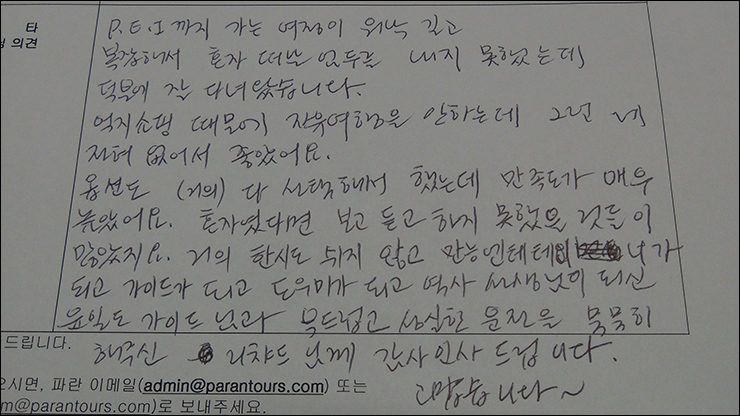 타
의견
P.E.I 까지 가는 여정이 워낙 길고
복잡해서 혼자 떠날 엄두를 내지 못했는데
덕분에 잘 다녀왔습니다.
억지쇼핑 때문에 자유여행을 안하는데 그런 게
전혀 없어서 좋았어요.
옵션도 (거의) 다 선택해서 했는데 만족도가 매우
높았어요. 혼자였다면 보고 듣고 하지 못했을 것들이
많았지요. 거의 한시도 쉬지 않고 만능엔테테이너가
되고 가이드가 되고 도우미가 되고 역사 선생님이 되신
윤일도 가이드 님과 부드럽고 성실한 운전을 묵묵히
드립니다.
해주신 리챠드 님께 감사인사 드립니다.
고맙습니다~
으시면, 파란 이메일(admin@parantours.com) 또는
m@parantours.com)로 보내주세요.